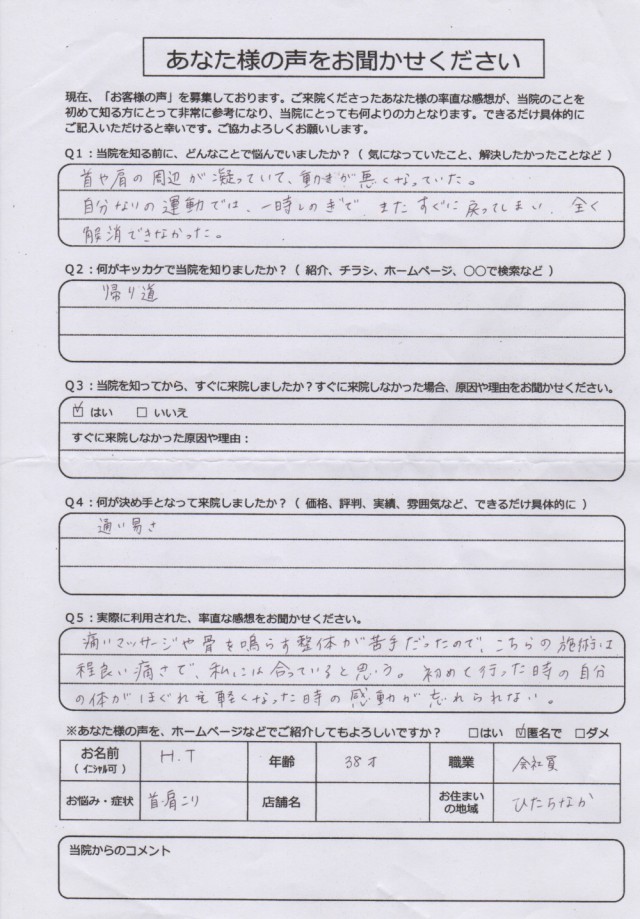 あなた様の声をお聞かせください
現在、「お客様の声」を募集しております。ご来院くださったあなた様の率直な感想が、当院のことを
初めて知る方にとって非常に参考になり、当院にとっても何よりの力となります。できるだけ具体的に
ご記入いただけると幸いです。ご協力よろしくお願いします。
Q1：当院を知る前に、どんなことで悩んでいましたか？（ 気になっていたこと、解決したかったことなど ）
首や肩の周辺が凝っていて、動きが悪くなっていた。
自分なりの運動では、一時しのぎで、またすぐに戻ってしまい、全く
解消できなかった。
Q2：何がキッカケで当院を知りましたか？（ 紹介、チラシ、ホームページ、〇〇で検索など ）
帰り道
Q3：当院を知ってから、すぐに来院しましたか？すぐに来院しなかった場合、原因や理由をお聞かせください。
☑ はい □ いいえ
すぐに来院しなかった原因や理由：
Q4：何が決め手となって来院しましたか？（ 価格、評判、実績、雰囲気など、できるだけ具体的に ）
通い易さ
Q5：実際に利用された、率直な感想をお聞かせください。
痛いマッサージや骨を鳴らす整体が苦手だったので、こちらの施術は
程良い痛さで、私には合っていると思う。初めて行った時の自分
の体がほぐれて軽くなった時の感動が忘れられない。
※あなた様の声を、ホームページなどでご紹介してもよろしいですか？ □はい ☑匿名で □ダメ
お名前（ イニシャル可 ） H.T 年齢 38才 職業 会社員
お悩み・症状 首・肩こり 店舗名 お住まいの地域 ひたちなか
当院からのコメント